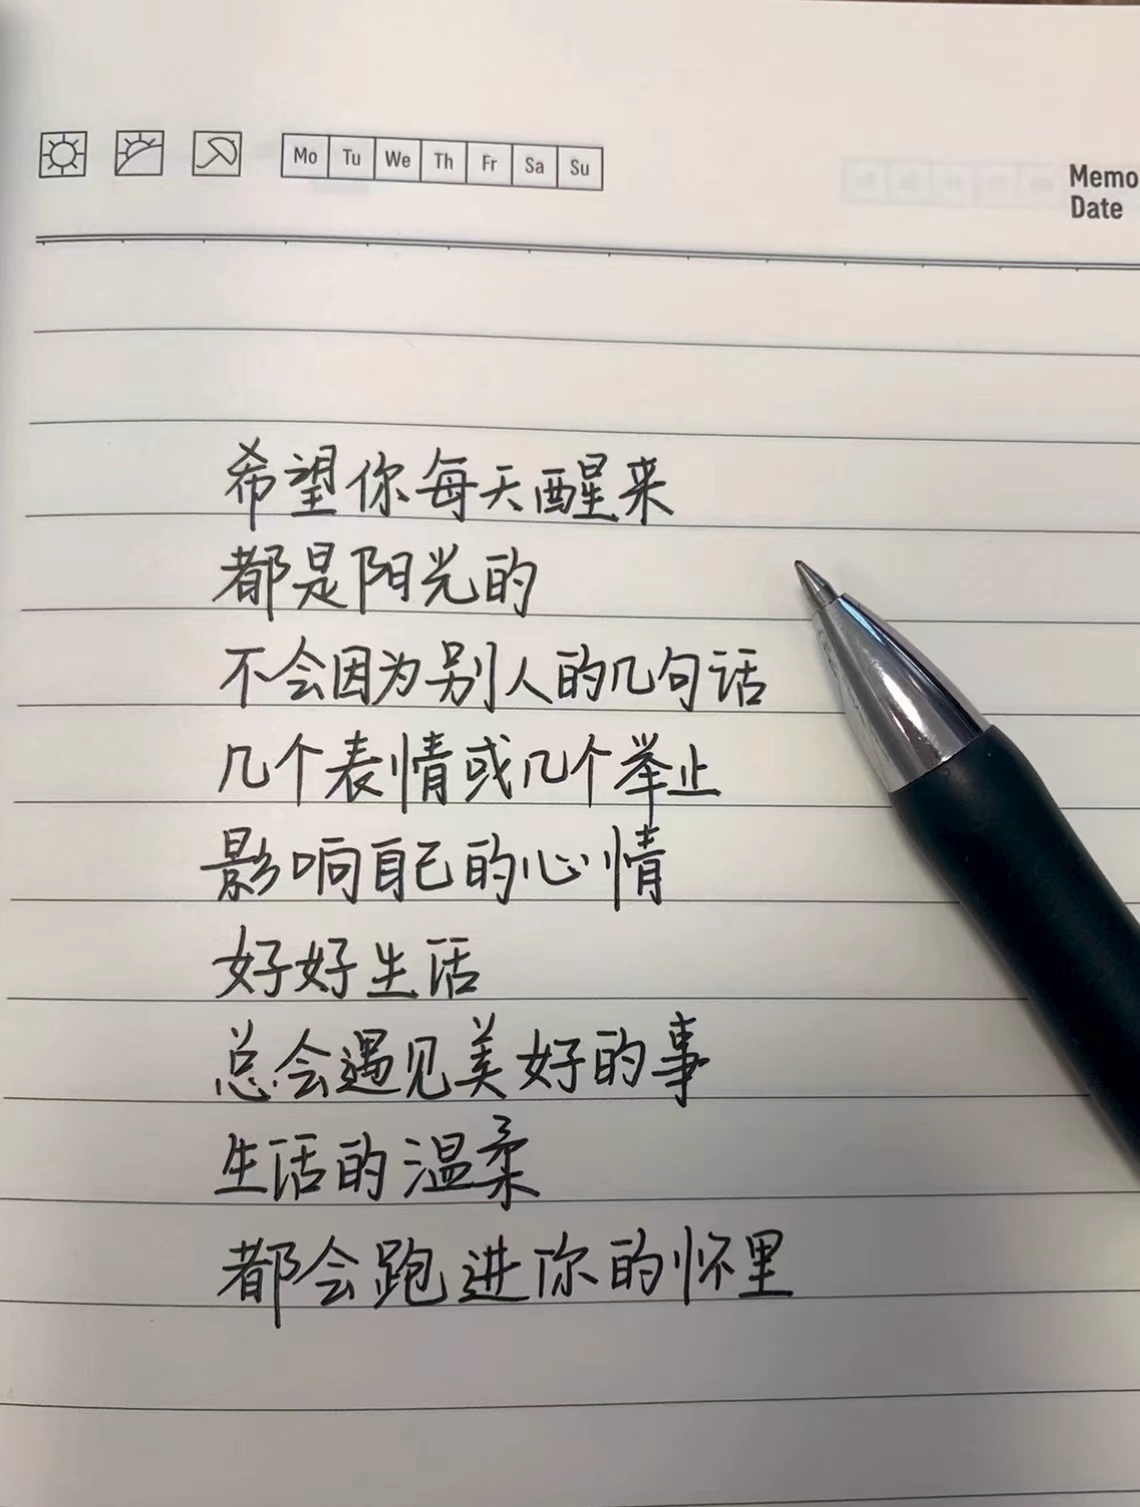 Mo Tu We Th Fr Sa Su
Memo
Date
希望你每天醒来
都是阳光的
不会因为别人的几句话
几个表情或几个举止
影响自己的心情
好好生活
总会遇见美好的事
生活的温柔
都会跑进你的怀里